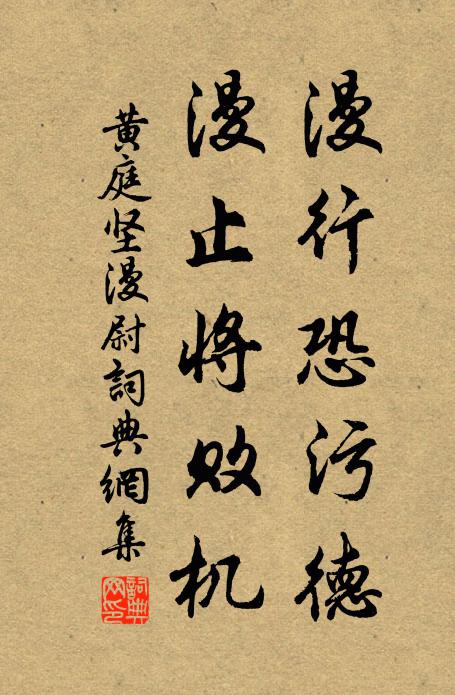 漫行恐污德
漫止将败机
黄庭坚漫尉詞典網集
詞典
网印